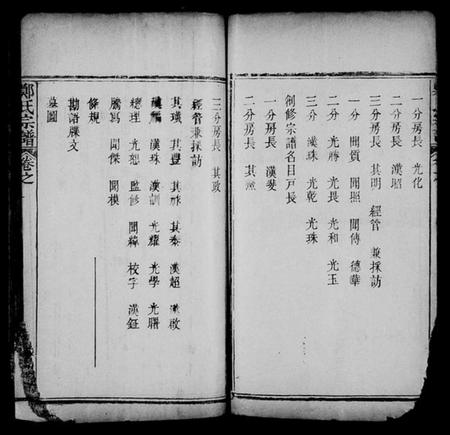 一分房長 光化
二分房長 漢昭
三分房長 其明 經管 兼採訪
一分 聞質 聞照 聞傳 德華
二分 光勝 光長 光和 光玉
三分 漢珠 光乾 光珠
創修宗譜名目戸長
一分房長 漢發
二分房長 其
三分房長 其政
經管兼採訪
其璜 其豐 其 其泰 漢超 漢啟
纂編 漢珠 漢訓 光耀 光學 光曙
總理 光恕 監修 聞釋 校字 漢鈺
謄寫 聞傑 聞模
條規
勘語牒文
墓圖
鄭氏宗譜 卷之一